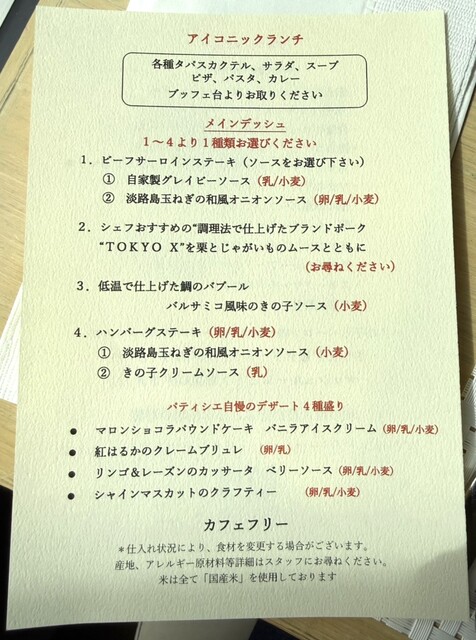 アイコニックランチ
各種タパスカクテル、サラダ、スープ
ピザ、パスタ、カレー
ブッフェ台よりお取りください
メインデッシュ
1～4より1種類お選びください
1．ビーフサーロインステーキ（ソースをお選び下さい）
① 自家製グレイビーソース（乳/小麦）
② 淡路島玉ねぎの和風オニオンソース（卵/乳/小麦）
2．シェフおすすめの“調理法で仕上げたブランドポーク
“TOKYO X”を栗とじゃがいものムースとともに
（お尋ねください）
3．低温で仕上げた鯛のバプール
バルサミコ風味のきの子ソース（小麦）
4．ハンバーグステーキ（卵/乳/小麦）
① 淡路島玉ねぎの和風オニオンソース（小麦）
② きの子クリームソース（乳）
パティシエ自慢のデザート4種盛り
● マロンショコラパウンドケーキ バニラアイスクリーム（卵/乳/小麦）
● 紅はるかのクレームブリュレ （卵/乳）
● リンゴ＆レーズンのカッサータ ベリーソース（卵/乳/小麦）
● シャインマスカットのクラフティー （卵/乳/小麦）
カフェフリー
＊仕入れ状況により、食材を変更する場合がございます。
産地、アレルギー原材料等詳細はスタッフにお尋ねください。
米は全て「国産米」を使用しております